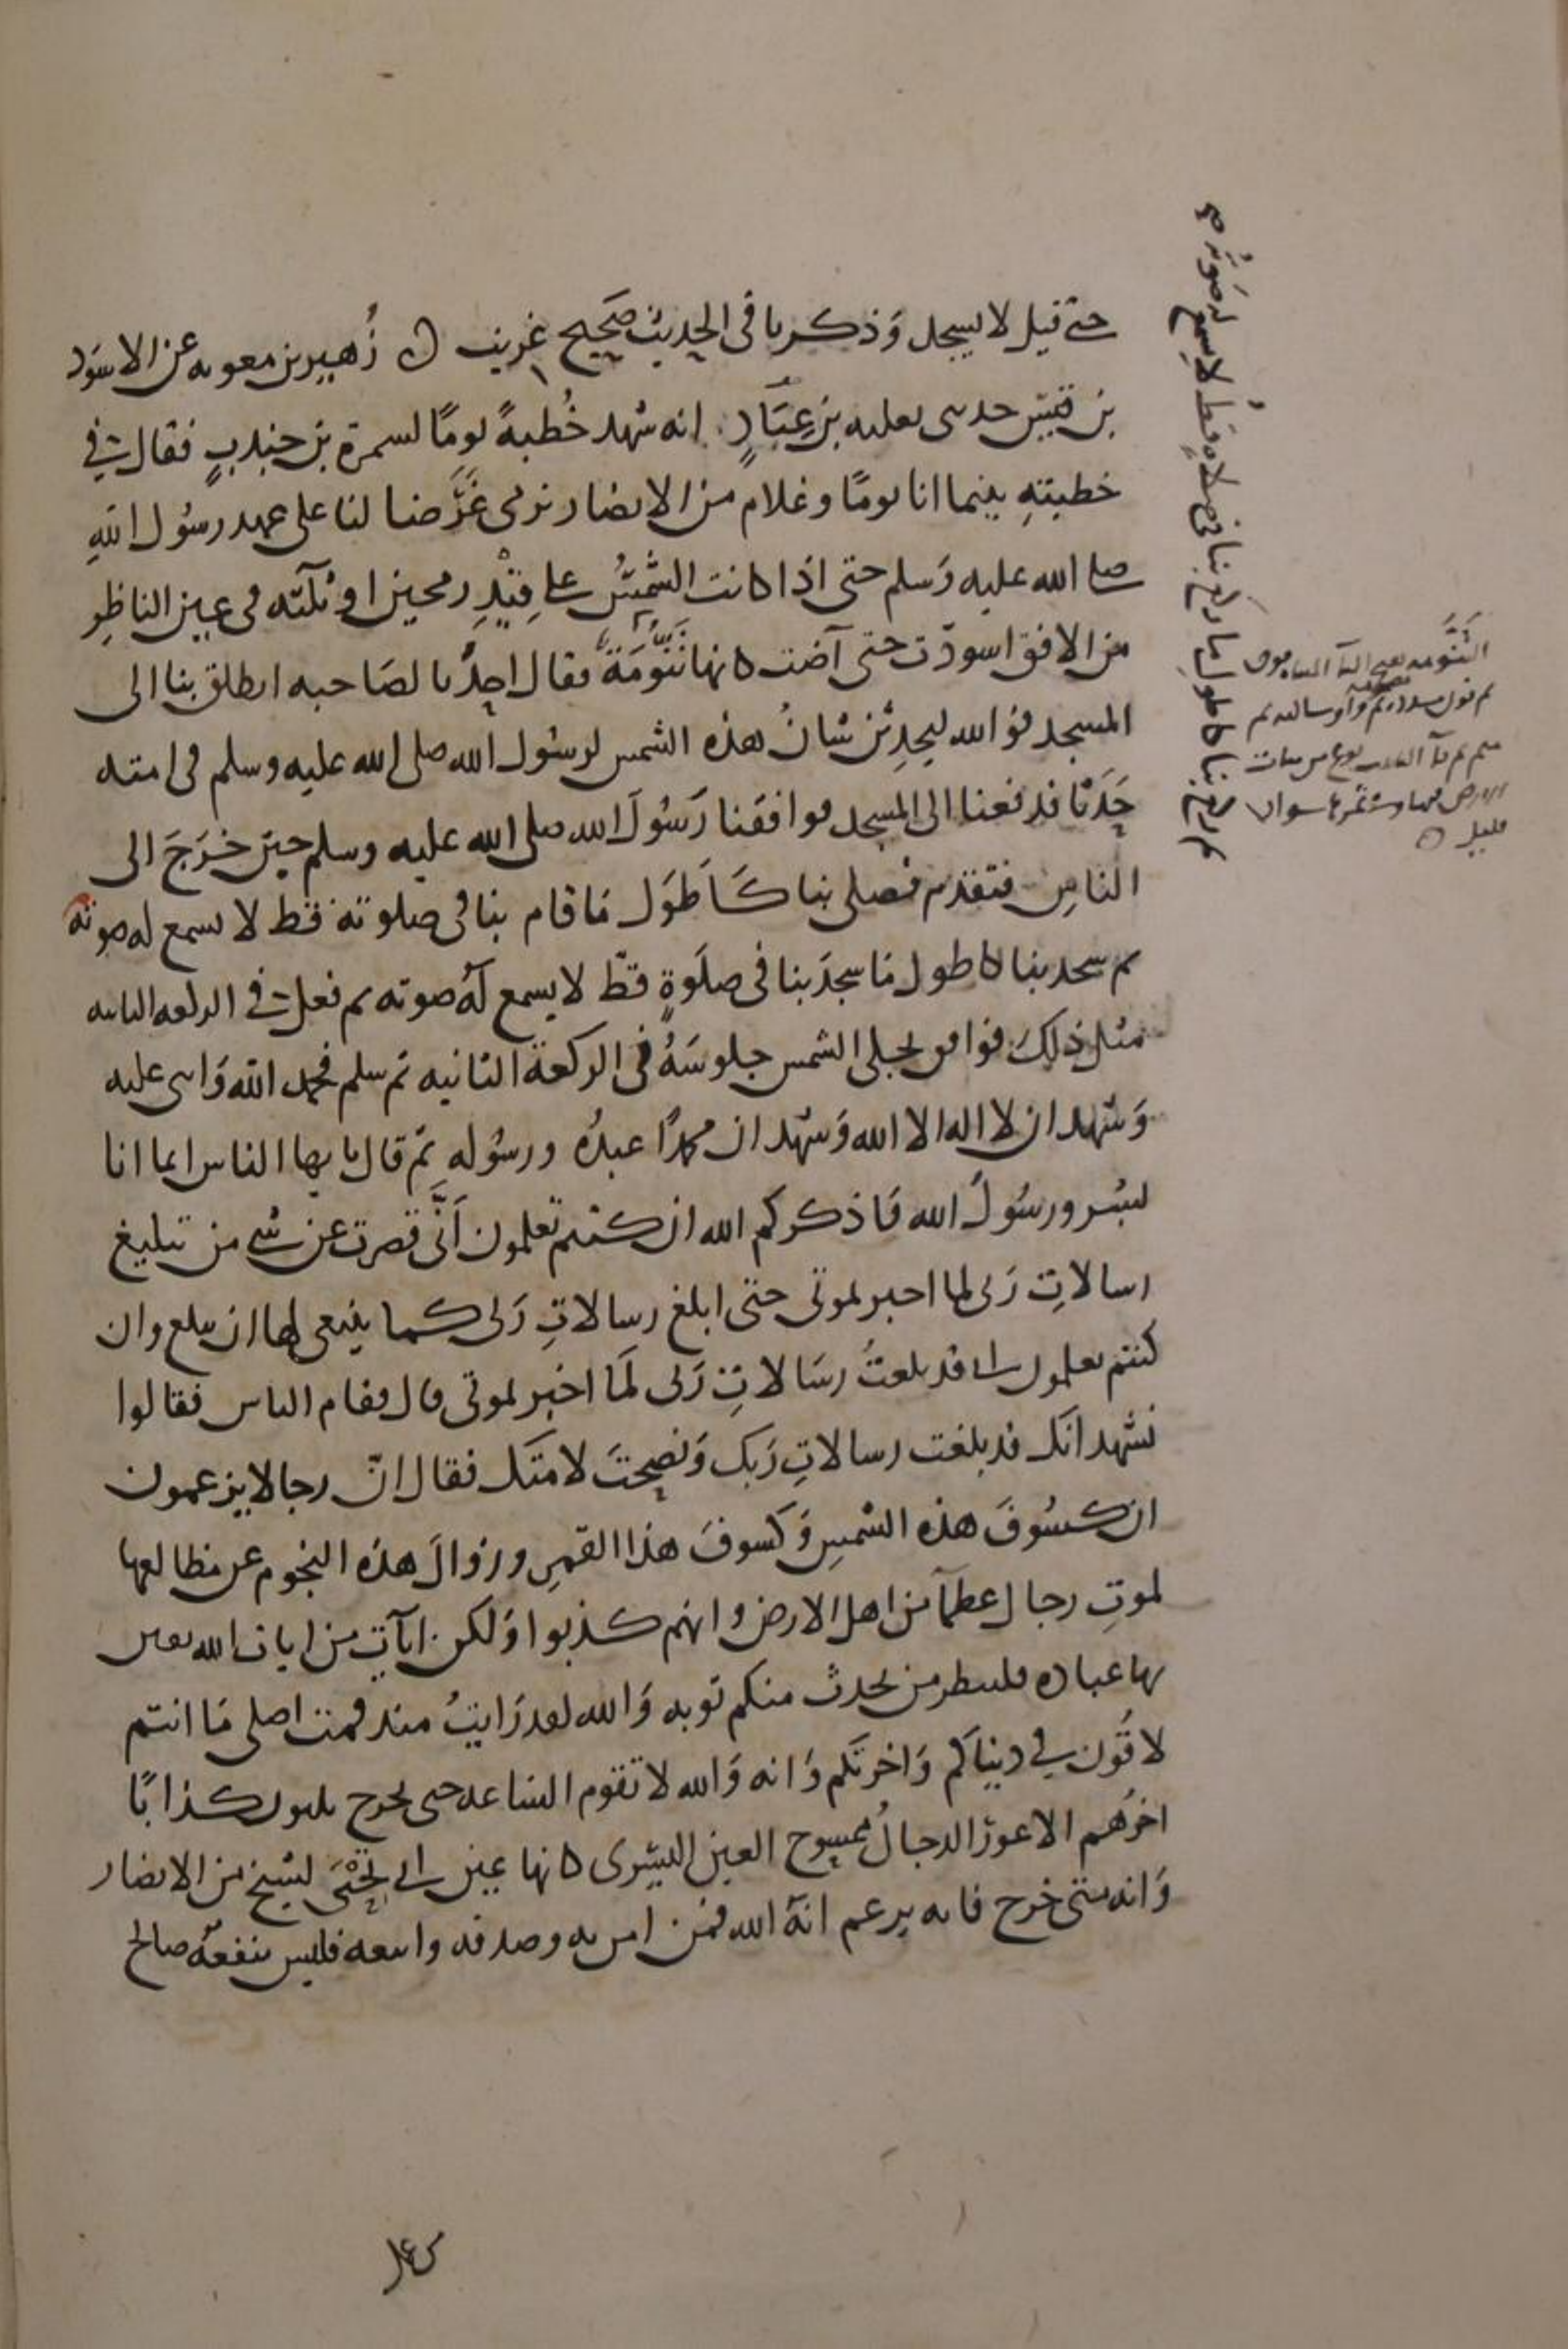 حتى قيل لا يسجد وذكر باقى الحديث صحيح غريب ه زُهير بن معويه عن الاسود
بن قيس حدثنى ثعلبه بن عِبَادٍ انه شهد خُطبةً يومًا لسمرة بن جندبٍ فقال فى
خطبتهِ بينما انا يومًا وغلام من الانصار نرمى غَرَضا لنا على عهد رسُول اللهِ
صلى الله عليه وَسلم حتى اذا كانت الشمسُ على قِيْدِ رمحين او ثلثه فى عين الناظِرِ
من الافق اسودّت حتى آضت كانها تَنُّومَةٌ فقال احدُنا لصَاحبه انطلق بنا الى
المسجد فوَ الله ليحدِثن شانُ هذه الشمس لرسُول الله صلى الله عليه وسلم فى امته
حَدَثا فدفعنا الى المسجد فوافقنا رَسُولَ الله صلى الله عليه وسلم حين خرَجَ الى
الناسِ فتقدم فصلى بنا كَاَطوَل مَا قام بنا فى صلوته قط لا يسمع له صوته
ثم سجد بنا كاطول مَا سجدَ بنا فى صلَوةٍ قطّ لا يسمع لهُ صوته ثم فعل فى الركعه الثانيه
مثل ذلِكَ فوافق تجلى الشمس جلوسَهُ فى الركعة الثانيه ثم سلم فحمد الله وَاثنى عليه
وَشهد ان لا اله الا الله وَشهد ان محمدًا عبدُه ورسُوله ثم قال يا ايها الناس انما انا
بشر ورسُولُ الله فَاذكركم الله ان كنتم تعلمون اَنّى قصرت عن شى من تبليغ
رسالاتِ رَبى لما اخبرتمونى حتى ابلغ رسالاتِ رَبى كما ينبغى لها ان تبلغ وان
كنتم تعلمون انى قد بلغتُ رسَالاتِ رَبى لَمَا اخبرتمونى قال فقام الناس فقالوا
نشهد انكَ قد بلغت رسالاتِ رَبك وَنصحتَ لامتك فقال انّ رجالا يزعمون
ان كسُوفَ هذه الشمسِ وَكسوفَ هذا القمرِ وزوالَ هذه النجوم عن مطالعها
لموتِ رجال عظمآ من اهل الارض وانهم كذبوا وَلكن اياتٍ من ايات الله يفتن
بها عباده فلينظر من يحدث منكم توبه وَالله لقد رَايتُ منذ قمت اصلى مَا انتم
لاقُون فى دنياكم وَاخرتكم وَانه وَالله لا تقوم الساعه حتى يخرج ثلثون كذابًا
اخرُهم الاعورُ الدجالُ ممسوح العين اليُسرى كانها عين ابى تِحْيَى لشيخ من الانصار
وَانه متى خرج فانه يزعم انهَ الله فمن امن به وصدقه واتبعه فليس ينفعهُ صالح
ثم ركع بنا كاطول ما ركع بنا فى صلاهٍ قطُ لا يسمع له صَوتُه صح
التَنُّومه بفتح التآ
ثم نون مشدده وآو ساكنه ثم
ميم ثم هآ التانيث نوع من نبات
الارض فيها وفى ثمرها سواد
قليل ه